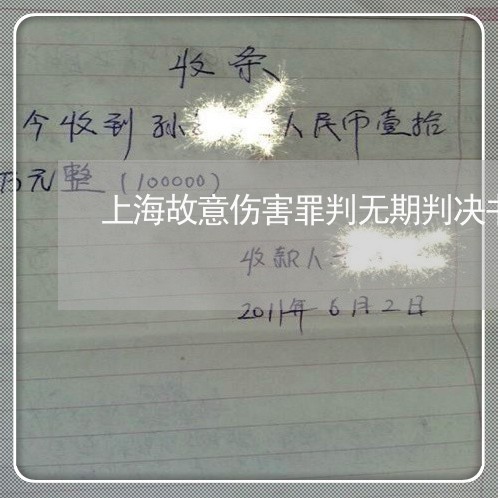 收条
今收到孙 人民币壹拾
万元整(100000)
上海故意伤害罪判无期判决
收款人
2011年6月2日